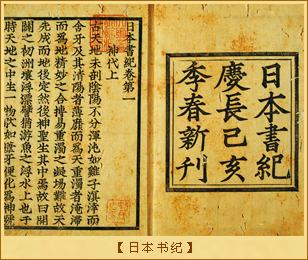 日本書紀
慶長己亥
季春新刊
日本書紀卷第一
神代上
古天地未剖陰陽不分渾沌如雞子溟涬而
含牙及其清陽者薄靡而爲天重濁者淹滯
而爲地精妙之合搏易重濁之凝場難故天
先成而地後定然後神聖生其中焉故曰開
闢之初洲壤浮漂譬猶游魚之浮水上也于
時天地之中生一物狀如葦牙便化爲神
【日本书纪】